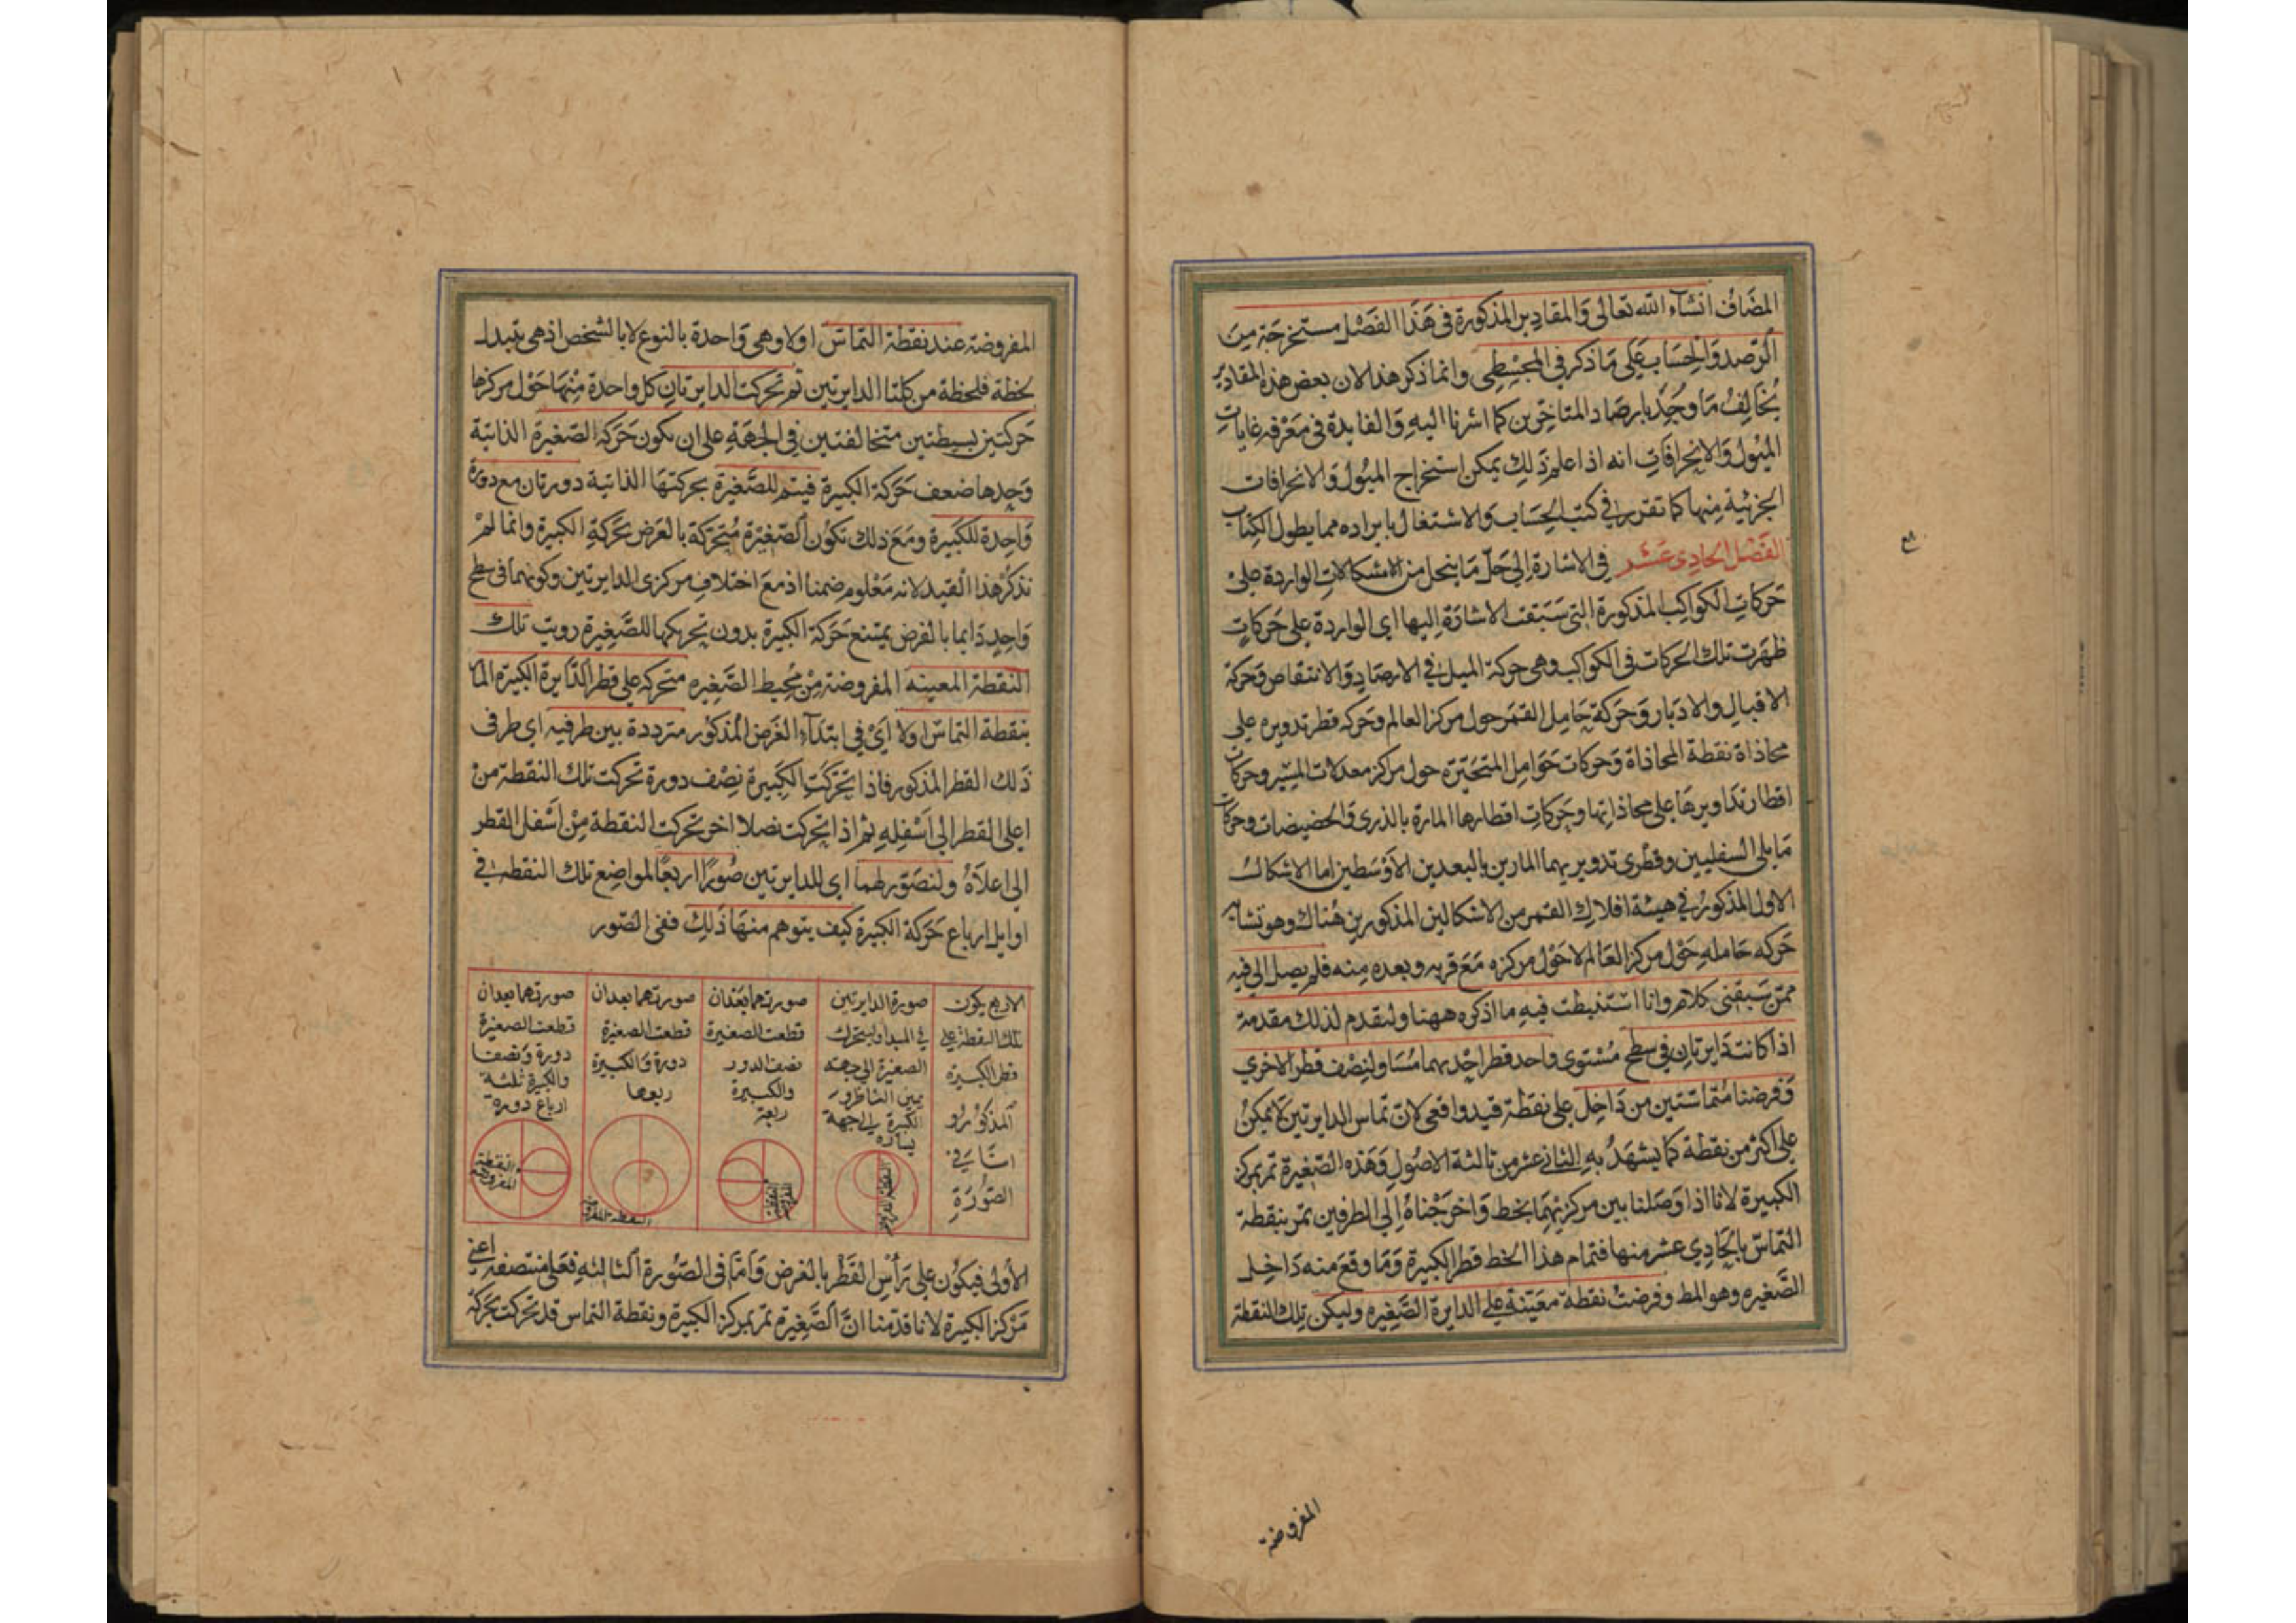 المضاف انشاء الله تعالى والمقادير المذكورة في هذا الفصل مستخرجة من
الرصد والحساب على ما ذكر في المجسطي وانما ذكر هذا لان بعض هذه المقادير
يخالف ما وجد بارصاد المتاخرين كما اشرنا اليه والفايدة في معرفه غايات
الميول والانحرافات انه اذا علم ذلك يمكن استخراج الميول والانحرافات
الجزئية منها كما تقرر في كتب الحساب والاشتغال بايراده مما يطول الكتاب
الفصل الحادي عشر في الاشارة الى حل ما ينحل من الاشكالات الواردة على
حركات الكواكب المذكورة التي سبقت الاشارة اليها اي الواردة على حركات
ظهرت تلك الحركات في الكواكب وهي حركة الميل في الارصاد والانتقاص وحركة
الاقبال والادبار وحركة حامل القمر حول مركز العالم وحركه قطر تدويره على
محاذاة نقطة المحاذاة وحركات حوامل المتحيره حول مراكز معدلات المسير وحركات
اقطار تداويرها على محاذاتها وحركات اقطارها المارة بالذرى والحضيضات وحركات
مايلي السفليين وقطري تدويريهما المارين بالبعدين الاوسطين اما الاشكال
الاول المذكور في هيئة افلاك القمر من الاشكالين المذكورين هناك وهو تشابه
حركه حامله حول مركز العالم لا حول مركزه مع قربه وبعده منه فلم يصل الي فيه
ممن سبقني كلام وانا استنبطت فيه ما اذكره ههنا ولنقدم لذلك مقدمة
اذا كانت دايرتان في سطح مستوى واحد قطر احديهما مساو لنصف قطر الاخرى
وفرضنا متماستين من داخل على نقطة قيد واقعي لان تماس الدايرتين لا يمكن
على اكثر من نقطة كما يشهد به الثاني عشر من ثالثة الاصول وهذه الصغيرة تمر بمركز
الكبيرة لانا اذا وصلنا بين مركزيهما بخط واخرجناه الى الطرفين تمر بنقطة
التماس بالحادي عشر منها فتمام هذا الخط قطر الكبيرة وما وقع منه داخل
الصغيره وهو المط وفرضت نقطة معينة على الدايرة الصغيره وليكن تلك النقطة
المفروضة
المفروضة عند نقطة التماس اولا وهي واحدة بالنوع لا بالشخص اذ هي تتبدل
لحظة فلحظة من كلتا الدايرتين ثم تحركت الدايرتان كل واحدة منهما حول مركزها
حركتين بسيطتين متخالفتين في الجهة على ان تكون حركة الصغيرة الذاتية
وحدها ضعف حركة الكبيرة فيتم للصغيرة بحركتها الذاتية دورتان مع دورة
واحدة للكبيرة ومع ذلك تكون الصغيرة متحركة بالعرض بحركة الكبيرة وانما لم
نذكر هذا القيد لانه معلوم ضمنا اذ مع اختلاف مركزى الدايرتين وكونهما في سطح
واحد دايما بالفرض يمتنع حركة الكبيرة بدون تحريكها للصغيرة رويت تلك
النقطة المعينه المفروضة من محيط الصغيره متحركه على قطر الدايرة الكبيرة المار
بنقطة التماس اولا اي في ابتداء الغرض المذكور مترددة بين طرفيه اي طرفى
ذلك القطر المذكور فاذا تحركت الكبيرة نصف دورة تحركت تلك النقطة من
اعلى القطر الى اسفله ثم اذا تحركت نصفا اخر تحركت النقطة من اسفل القطر
الى اعلاه ولنصور لهما اي للدايرتين صورا اربعا لمواضع تلك النقطه في
اوايل ارباع حركة الكبيرة كيف يتوهم منها ذلك ففي الصور
الاربع يكون
تلك النقطة على
قطر الكبيرة
المذكور و
اما في
الصورة
صورة الدايرتين
في المبدا وليتحرك
الصغيرة الى جهة
يمين الناظر و
الكبيرة الى جهة
يساره
النقطة المفروضة
صورتهما بعد ان
قطعت الصغيرة
نصف الدور
والكبيرة
ربعه
النقطة المفروضة
صورتهما بعد ان
قطعت الصغيرة
دورة والكبيرة
ربعها
النقطة المفروضة
صورتهما بعد ان
قطعت الصغيرة
دورة ونصفا
والكبيرة ثلثة
ارباع دورة
النقطة
المفروضة
الاولى فيكون على راس القطر بالفرض واما في الصورة الثالثه فعلى منتصفه اعني
مركز الكبيرة لانا قدمنا ان الصغيرة تمر بمركز الكبيرة ونقطة التماس قد تحركت بحركة